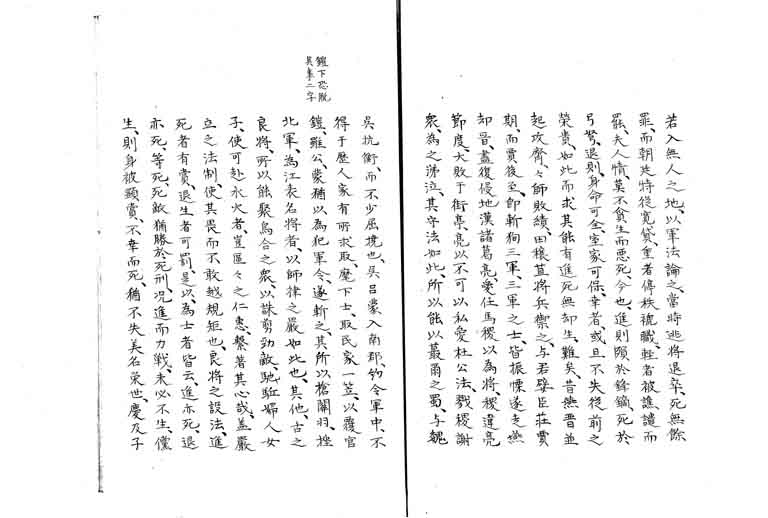 若入無人之地、以軍法論之、當時逃将退卒、死無餘
罪、而朝廷特從寛貸、重者停秩褫職、輕者被譙讓而
罷、夫人情莫不貪生而悪死、今也進則殞於鋒鏑、死於
弓弩、退則身命可全、室家可保、幸者、或且不失從前之
榮貴、如此而求其能有進死無却生、難矣、昔燕晋並
起攻齊、々師敗績、田穰苴将兵禦之、与君嬖臣莊賈
期、而賈後至、即斬徇三軍、三軍之士、皆振慄、遂走燕
却晋、盡復侵地、漢諸葛亮愛任馬稷以為将、稷違亮
節度、大敗于街亭、亮以不可以私愛杜公法、戮稷謝
衆、為之涕泣、其守法如此、所以能以蕞爾之蜀、与魏
鎧下恐脱
吳軍二字
吳抗衡、而不少屈撓也、吳呂蒙入南郡、約令軍中、不
得于歷人家有所求取、麾下士、取民家一笠、以覆官
鎧、雖公、蒙猶以為犯軍令、遂斬之、其所以搶關羽、挫
北軍、為江表名将者、以師律之嚴如此也、其他、古之
良将、所以能聚烏合之衆、以誅剪勁敵、馳駈婦人女
子、使可赴水火者、豈區々之仁恵、繫著其心哉、盖嚴
立之法制、使其畏而不敢越規矩也、良将之設法、進
死者有賞、退生者可罰、是以為士者皆云、進亦死、退
亦死、等死、死敵猶勝於死刑、况進而力戦、未必不生、儻
生、則身被顯賞、不幸而死、猶不失美名榮世、慶及子